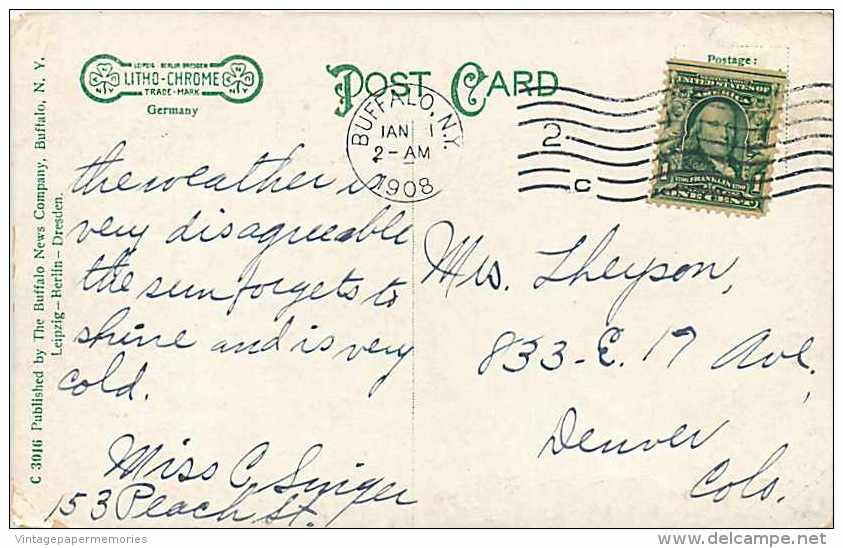 LEIPZIG - BERLIN - DRESDEN
LITHO-CHROME
TRADE-MARK
Germany
POST CARD
Postage:
BUFFALO, N.Y.
JAN 1
2-AM
1908
2
C
UNITED STATES OF
FRANKLIN
1 1
ONE CENT
C 3016 Published by The Buffalo News Company, Buffalo, N. Y.
Leipzig-Berlin-Dresden.
the weather is
very disagreeable
the sun forgets to
shine and is very
cold.
Miss C. Singer
153 Peach St.
Mrs. Lheyson,
833-E. 17 Ave,
Denver
Colo.
Vintagepapermemories
delcampe.net